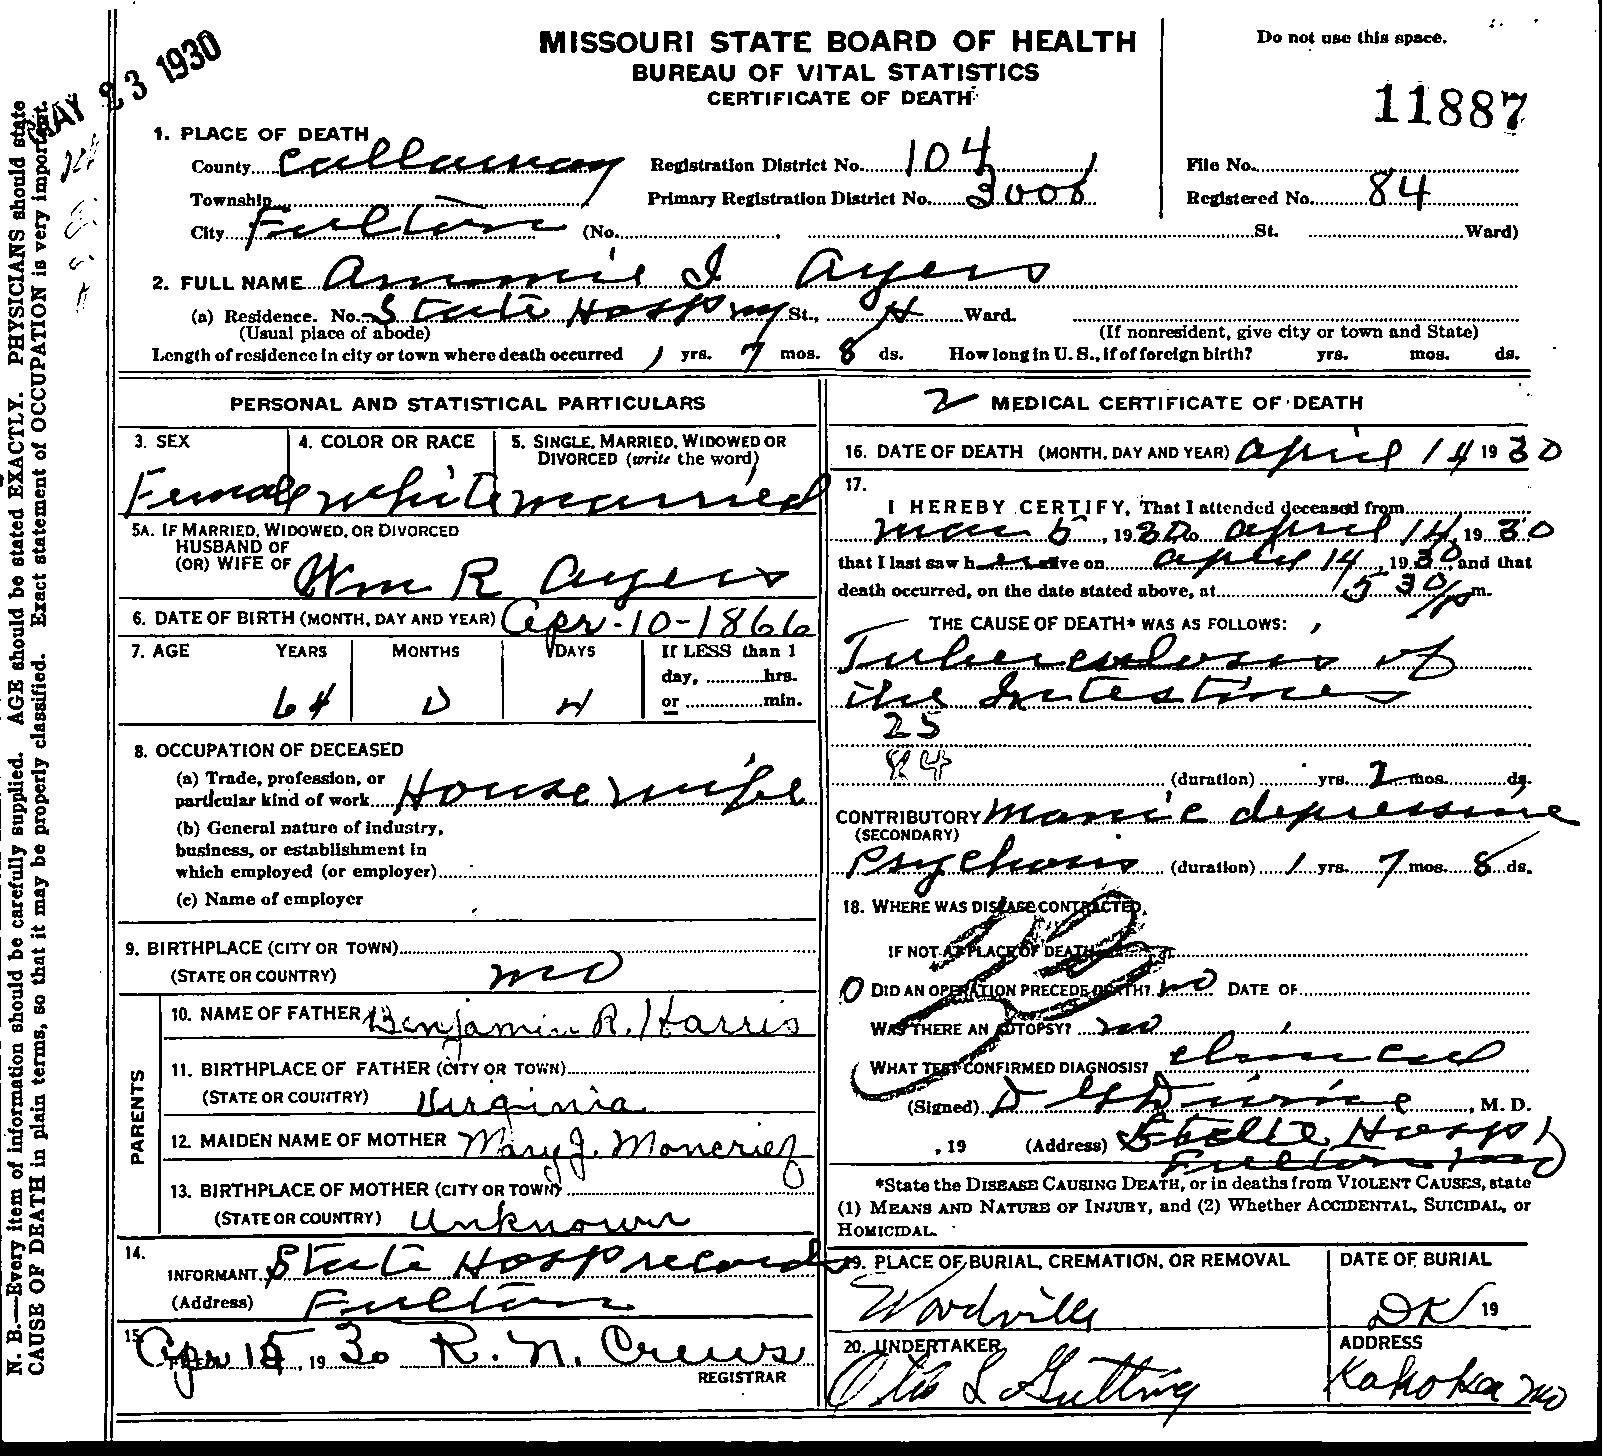 MAY 23 1930
MISSOURI STATE BOARD OF HEALTH
BUREAU OF VITAL STATISTICS
CERTIFICATE OF DEATH
Do not use this space.
11887
1. PLACE OF DEATH
County Callaway Registration District No. 104 File No.
Township Primary Registration District No. 3008 Registered No. 84
City Fulton (No. St. Ward)
2. FULL NAME Ammie I Ayers
(a) Residence. No. State Hosp St., 4 Ward.
(Usual place of abode) (If nonresident, give city or town and State)
Length of residence in city or town where death occurred 1 yrs. 7 mos. 8 ds. How long in U. S., if of foreign birth? yrs. mos. ds.
PERSONAL AND STATISTICAL PARTICULARS
3. SEX 4. COLOR OR RACE 5. SINGLE, MARRIED, WIDOWED OR
DIVORCED (write the word)
Female white married
5A. IF MARRIED, WIDOWED, OR DIVORCED
HUSBAND OF
(OR) WIFE OF Wm R Ayers
6. DATE OF BIRTH (MONTH, DAY AND YEAR) Apr-10-1866
7. AGE YEARS MONTHS DAYS If LESS than 1
day, hrs.
64 0 4 or min.
8. OCCUPATION OF DECEASED
(a) Trade, profession, or
particular kind of work House wife
(b) General nature of industry,
business, or establishment in
which employed (or employer)
(c) Name of employer
9. BIRTHPLACE (CITY OR TOWN)
(STATE OR COUNTRY) mo
PARENTS
10. NAME OF FATHER Benjamin R. Harris
11. BIRTHPLACE OF FATHER (CITY OR TOWN)
(STATE OR COUNTRY) Virginia
12. MAIDEN NAME OF MOTHER Mary J. Moncrief
13. BIRTHPLACE OF MOTHER (CITY OR TOWN)
(STATE OR COUNTRY) Unknown
14.
INFORMANT State Hosp records
(Address) Fulton
15. FILED Apr 15, 1930 R. N. Crews
REGISTRAR
2 MEDICAL CERTIFICATE OF DEATH
16. DATE OF DEATH (MONTH, DAY AND YEAR) April 14 1930
17.
I HEREBY CERTIFY, That I attended deceased from
mar 5, 1930 to april 14, 1930
that I last saw her alive on april 14, 1930 and that
death occurred, on the date stated above, at 5 30/p m.
THE CAUSE OF DEATH* WAS AS FOLLOWS:
Tuberculosis of
the Intestines
25
84
(duration) yrs. 2 mos. ds.
CONTRIBUTORY Manic depressive
(SECONDARY)
Psychosis (duration) 1 yrs. 7 mos. 8 ds.
18. WHERE WAS DISEASE CONTRACTED
IF NOT AT PLACE OF DEATH?
0 DID AN OPERATION PRECEDE DEATH? no DATE OF
WAS THERE AN AUTOPSY? no
WHAT TEST CONFIRMED DIAGNOSIS? clinical
(Signed) M. D.
, 19 (Address) State Hosp 1
Fulton mo
*State the DISEASE CAUSING DEATH, or in deaths from VIOLENT CAUSES, state
(1) MEANS AND NATURE OF INJURY, and (2) Whether ACCIDENTAL, SUICIDAL, or
HOMICIDAL.
19. PLACE OF BURIAL, CREMATION, OR REMOVAL DATE OF BURIAL
Woodville DK 19
20. UNDERTAKER ADDRESS
Otis L Gutting Kahoka mo
N. B.—Every item of information should be carefully supplied. AGE should be stated EXACTLY. PHYSICIANS should state
CAUSE OF DEATH in plain terms, so that it may be properly classified. Exact statement of OCCUPATION is very important.